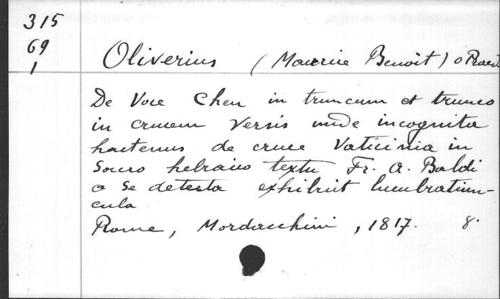 315
69
1
Oliverius (Maurice Benoit) o Praed
De Voce Cheu in truncum et trunco
in crucem Versis unde incognita
hactenus de cruce Vaticinia in
Socro hebraico textu Fr. A. Baldi
o se detecta exhibuit lucubratiun-
cula
Rome, Mordacchini, 1817. 8.